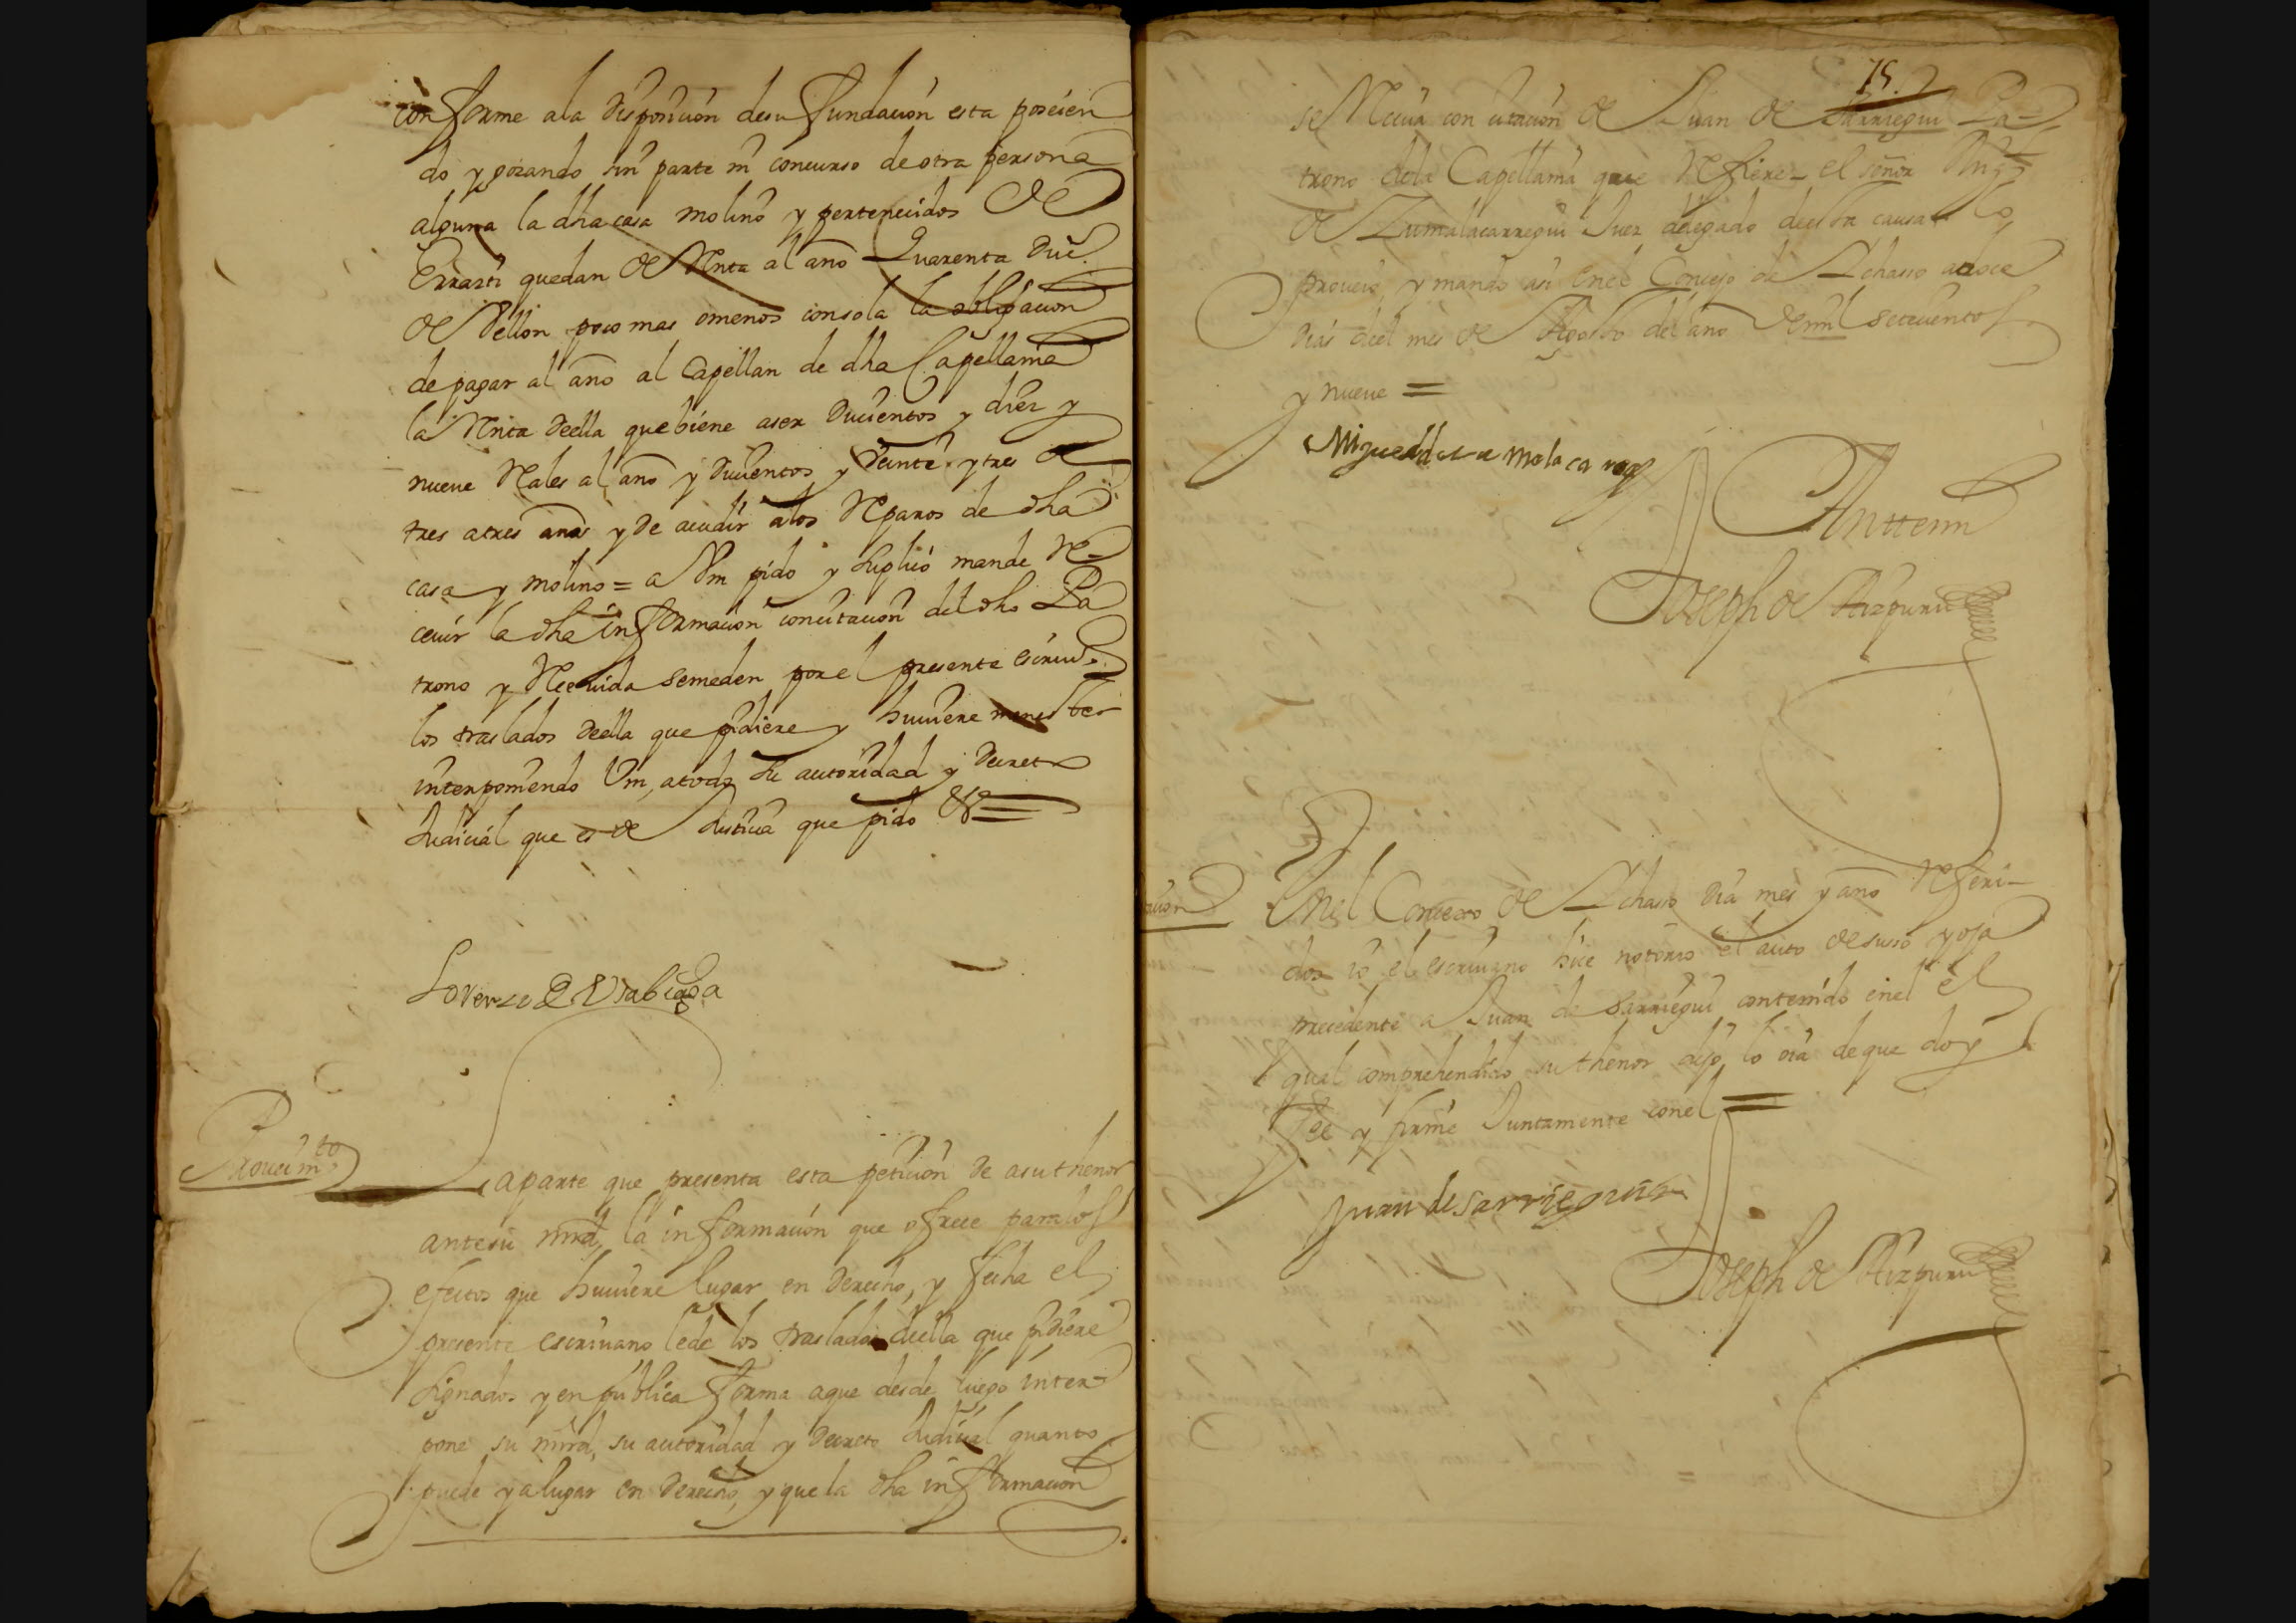 conforme ala disposicion desu fundacion esta poseien
do y gozando sin parte ni concurso de otra persona
alguna la dha casa molino y pertenecidos de
Errazti quedan de Renta al año Quarenta duc.
de Vellon poco mas omenos consola la obligacion
de pagar al año al Capellan de dha Capellania
la Renta deella que biene aser Ducientos y diez y
nueue Reales al año y Ducientos y Veinte y tres de
tres atres años y de acudir alos Reparos de dha
casa y molino = a Vm pido y suplico mande Re
ceuir la dha informacion concitacion del dho Pa
trono y Receuida semeden por el presente escriu.
los traslados deella que pidiere y huuiere menester
interponiendo Vm, atodo su autoridad y decreto
Judicial que es de Justicia que pido &a =
Lorenzo de Vsabiaga
Proueim.to
La parte que presenta esta peticion de asu thenor
antesu mrd, la informacion que ofrece paralos
efectos que huuiere lugar en derecho, y fecha el
presente escriuano lede los traslados deella que pidiere
signados y en publica forma aque desde luego inter
pone su mrd, su autoridad y Decreto Judicial quanto
puede y alugar en derecho, y que la dha informacion
15.
se Reciua con citacion de Juan de Sarriegui Pa
trono dela Capellania que Refiere el señor Mig.
de Zumalacarregui Juez delegado deesta causa lo
proueio, y mando asi enel Concejo de Ichasso adoce
dias del mes de Agosto del año de mil setecientos
y nueue =
Miguel de Zumalacarregui
Antemi
Joseph de Aizpuru
En el Concejo de Ichasso dia mes y año Referi
dos io el escriuano hice notorio el auto desusso y oja
precedente a Juan de Sarriegui contenido enel el
qual comprehendido su thenor dijo lo oia de que doy
fee y firme Juntamente conel =
Juan de sarriegui
Joseph de Aizpuru